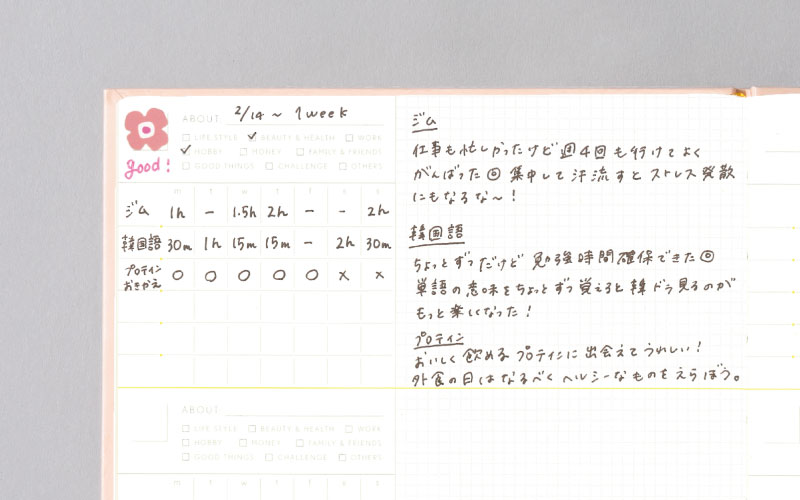 ABOUT 2/14 ~ 1week
LIFE STYLE BEAUTY & HEALTH WORK
HOBBY MONEY FAMILY & FRIENDS
good! GOOD THINGS CHALLENGE OTHERS
m t w t f s s
ジム 1h - 1.5h 2h - - 2h
韓国語 30m 1h 15m 15m - 2h 30m
プロテイン
おきかえ ○ ○ ○ ○ ○ × ×
ABOUT
LIFE STYLE BEAUTY & HEALTH WORK
HOBBY MONEY FAMILY & FRIENDS
GOOD THINGS CHALLENGE OTHERS
m t w t f s s
ジム
仕事も忙しかったけど週4回も行けてよく
がんばった◎集中して汗流すとストレス発散
にもなるな〜!
韓国語
ちょっとずつだけど勉強時間確保できた◎
単語の意味をちょっとずつ覚えると韓ドラ見るのが
もっと楽しくなった!
プロテイン
おいしく飲めるプロテインに出会えてうれしい!
外食の日はなるべくヘルシーなものをえらぼう。